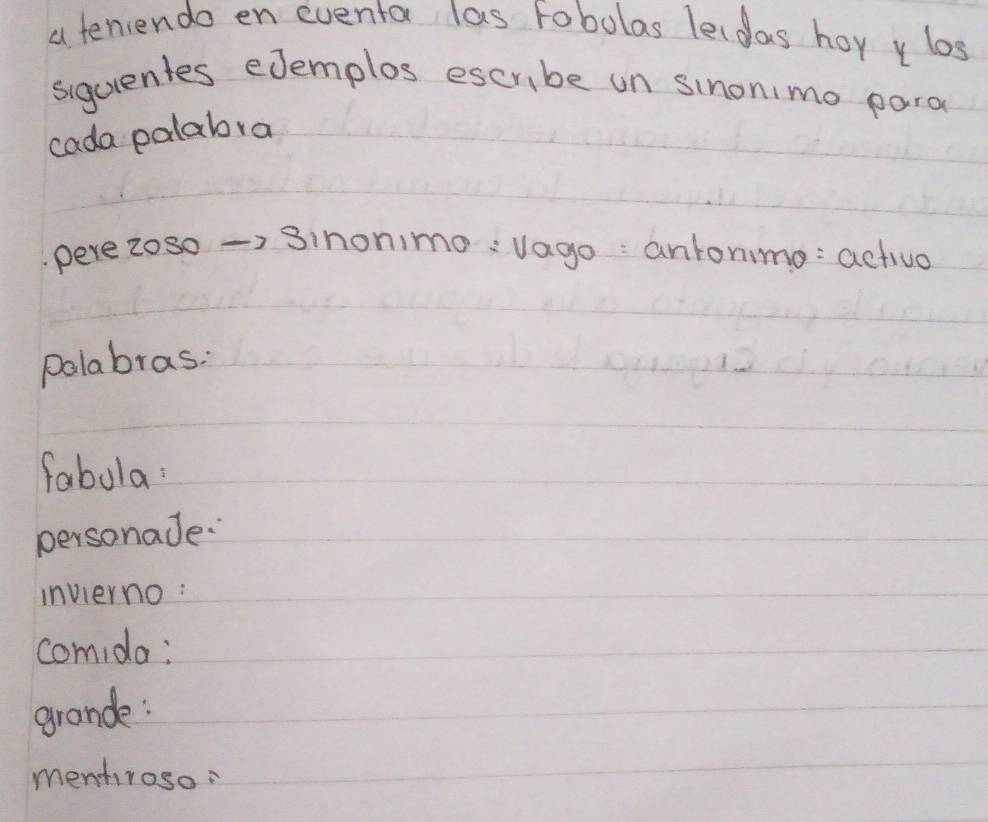 a teniendo en cuenta las Fabulas leidas hoy y los
siguientes eJemplos escribe un sinonimo para
cada palabra
.perezoso -> Sinonimo: Vago: antonimo: activo
palabras:
fabula:
personaJe:
invierno:
comida:
grande:
mentiroso: